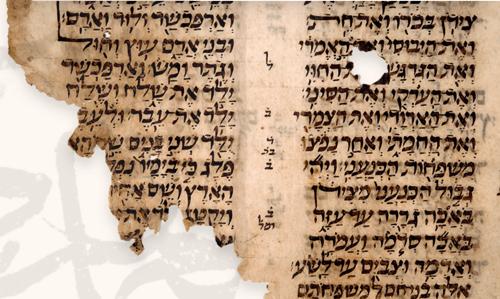 צידן בכרו ואת חת
ואת היבוסי ואת האמרי
ואת הגרגש החוי
ואת הערקי ואת הסיני
ואת הארודי ואת הצמרי
ואת החמתי ואחר נפצו
משפחות הכנעני ויהי
גבול הכנעני מצידן
באכה גררה עד עזה
באכה סדמה ועמרה
ואדמה וצבים עד לשע
אלה בני חם למשפחתם
וארפכשד ולוד וארם
ובני ארם עוץ וחול
וגתר ומש וארפכשד
ילד את שלח ושלח
ילד את עבר ולעב
ילד שני בנים שם הא
פלג כי בימיו נפל
הארץ ושם אח
ויקטן ילד את